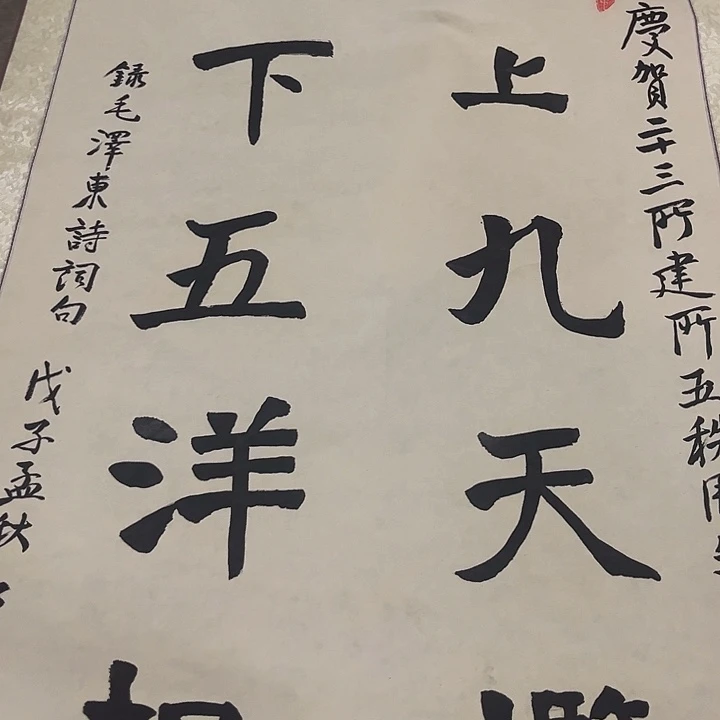 慶賀二十三所建所五秩周
上九天
下五洋
録毛澤東詩詞句
戊子孟秋